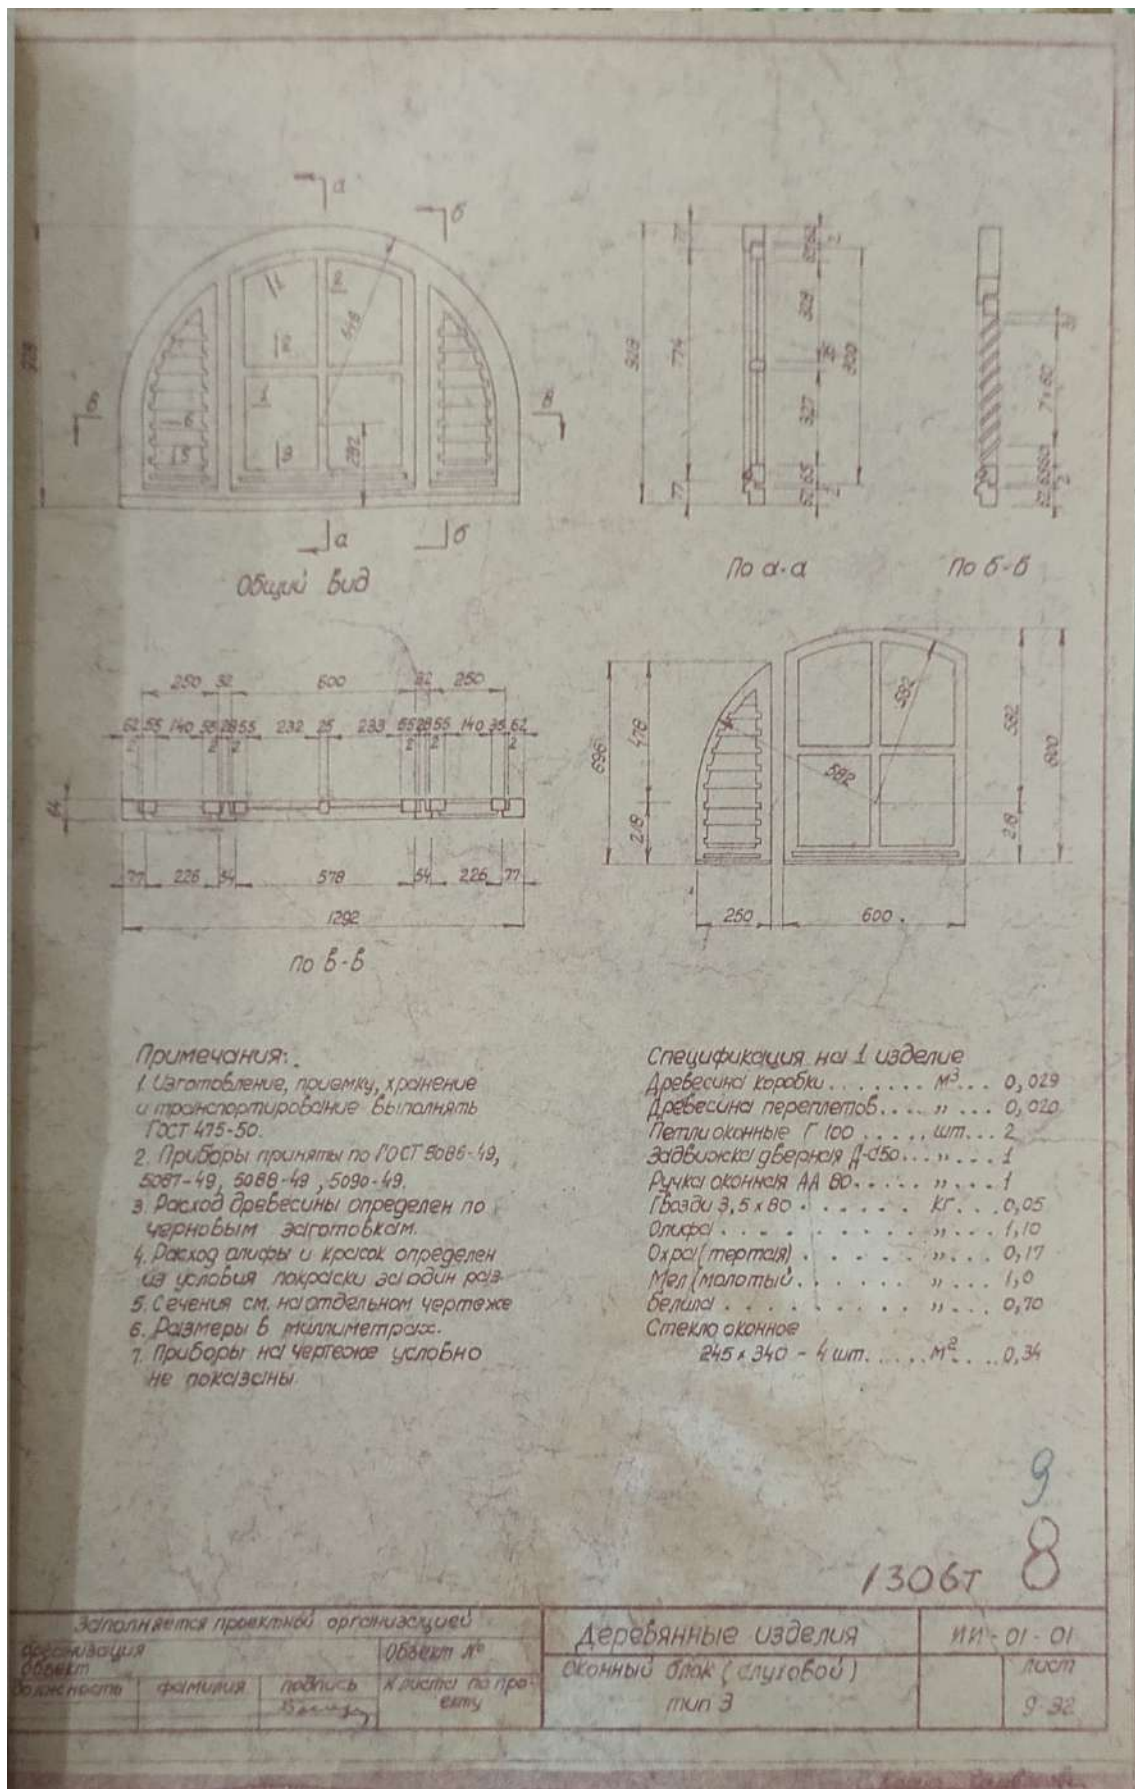 а
б
928
646
2
1
3
1
3
282
6
5
в
в
а
б
Общий вид
928
77
774
77
2
328
25
327
800
2
По а-а
7×60
2
По б-б
250 32 600 32 250
62 55 140 55 28 55 232 25 233 55 28 55 140 35 62
2 2 2 2 2 2
64
77 226 54 578 54 226 77
1292
по в-в
696
478
218
582
582
582
218
800
250
600
Примечания:
1. Изготовление, приемку, хранение
и транспортирование выполнять
ГОСТ 475-50.
2. Приборы приняты по ГОСТ 5086-49,
5087-49, 5088-49, 5090-49.
3. Расход древесины определен по
черновым заготовкам.
4. Расход олифы и красок определен
из условия покраски за один раз.
5. Сечения см. на отдельном чертеже
6. Размеры в миллиметрах.
7. Приборы на чертеже условно
не показаны
Спецификация на 1 изделие
Древесина коробки . . . . . . . м³ . . . 0,029
Древесина переплетов . . . . „ . . . 0,020
Петли оконные Г 100 . . . . . шт. . . 2
Задвижка дверная Д-150 . . . „ . . . 1
Ручка оконная АА 80 . . . . . „ . . . 1
Гвозди 3,5×80 . . . . . . кг . . . 0,05
Олифа . . . . . . . . . „ . . . 1,10
Охра (тертая) . . . . . . „ . . . 0,17
Мел (молотый . . . . . . „ . . . 1,0
Белила . . . . . . . . . „ . . . 0,70
Стекло оконное
245×340 - 4 шт. . . . . . м² . . . 0,34
9
1306т 8
Заполняется проектной организацией
Организация
Объект
Объект №
должность фамилия подпись
№ листа по про-
екту
Деревянные изделия
ИИ-01-01
Оконный блок (слуховой)
тип 3
лист
9-32